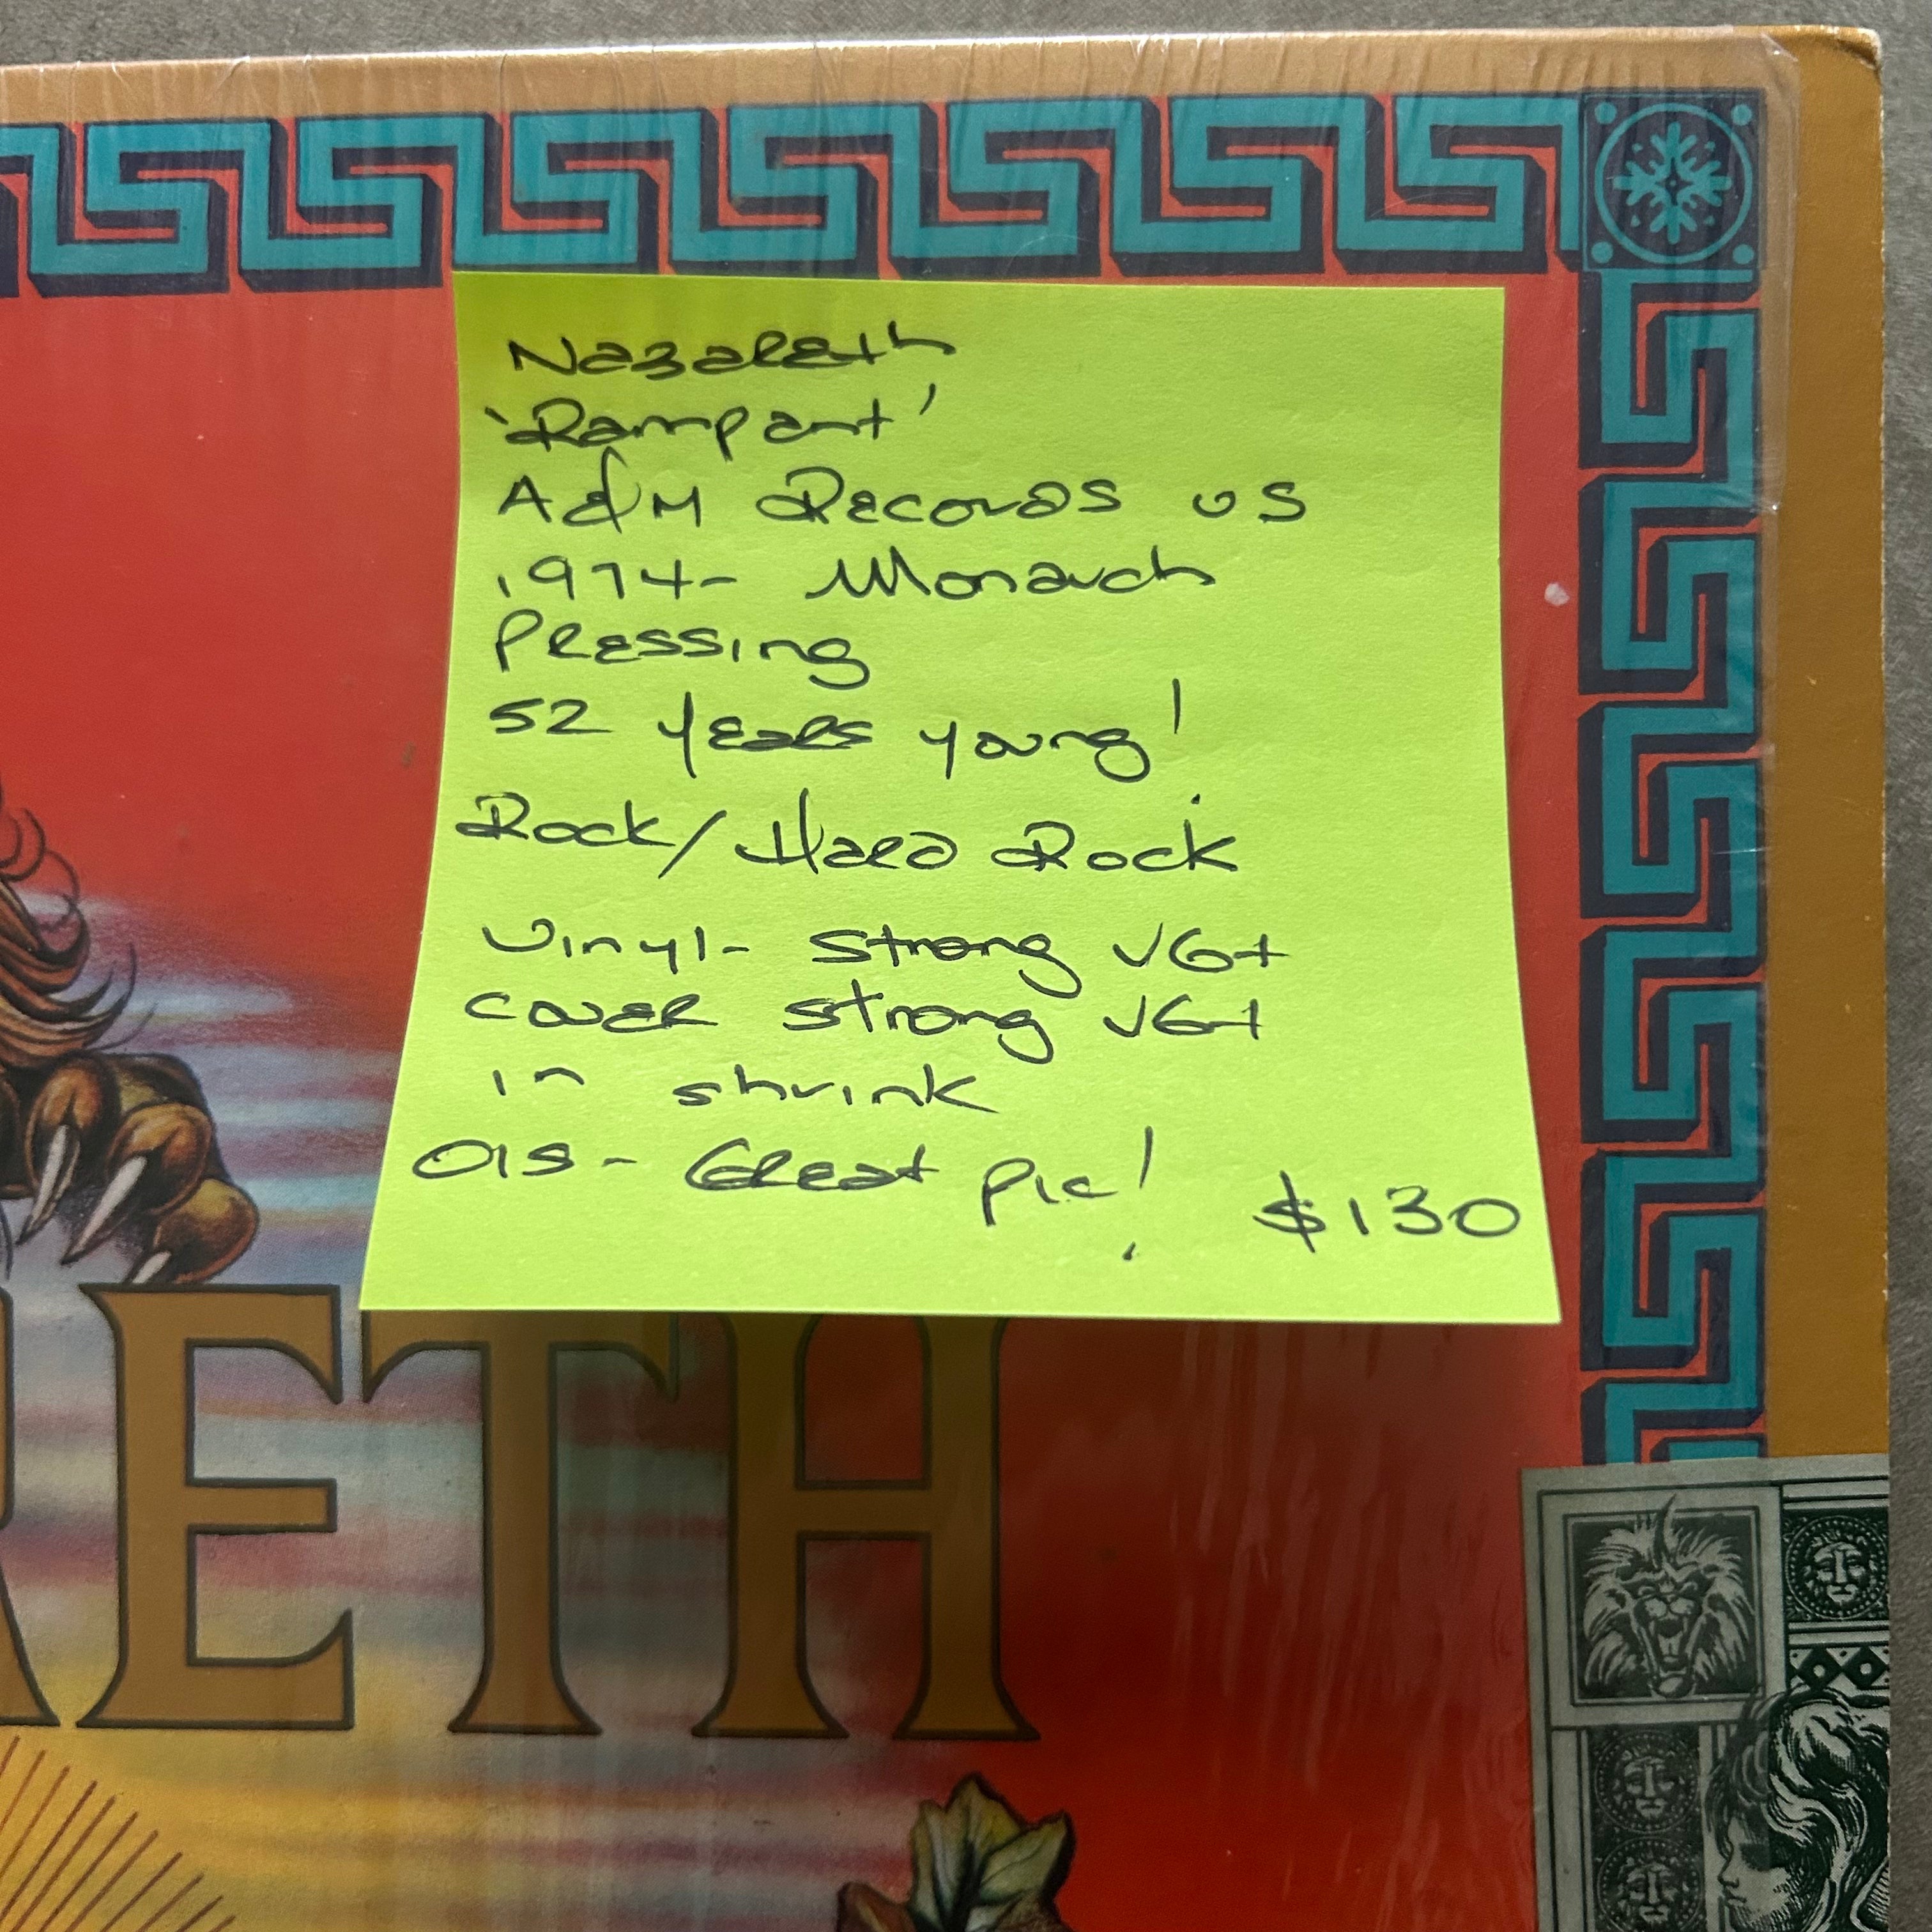 Nazareth
'Rampant'
A&M Records US
1974- Monarch
Pressing
52 years young!
Rock/Hard Rock
Vinyl- strong VG+
cover strong VG+
in shrink
OIS- Great pic!
$130
RETH